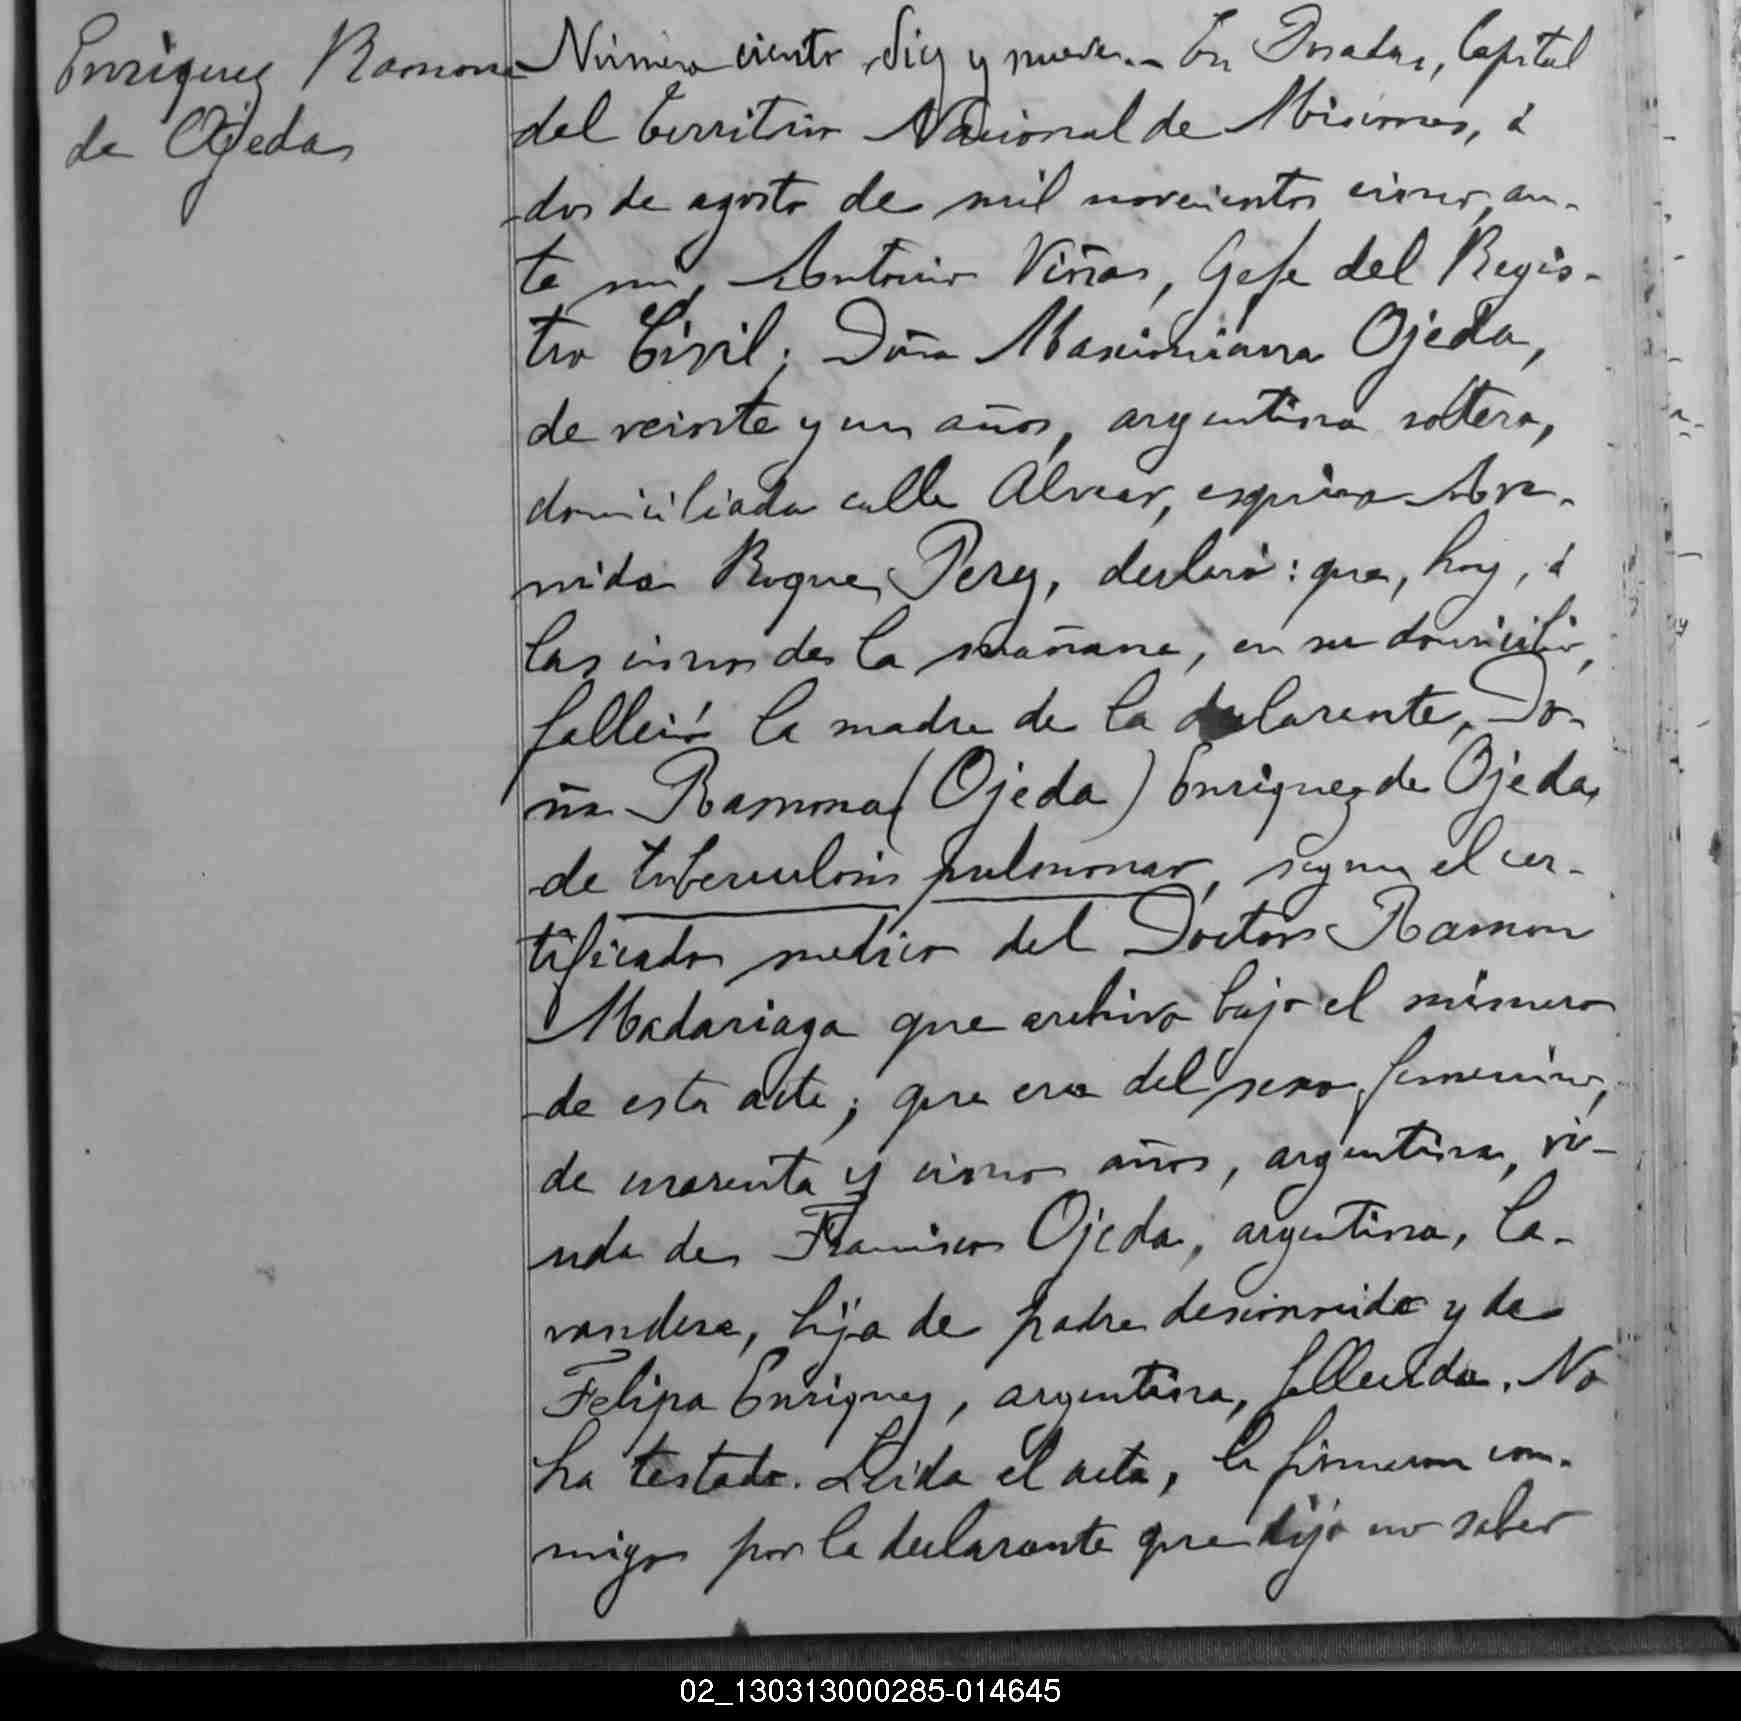 Enriquez Ramona
de Ojeda
Número ciento diez y nueve.- En Posadas, Capital
del Territorio Nacional de Misiones, á
dos de agosto de mil novecientos cinco, an-
te mi, Antonio Viñas, Gefe del Regis-
tro Civil; Doña Maximiana Ojeda,
de veinte y un años, argentina soltera,
domiciliada calle Alvear, esquina Ave-
nida Roque Perez, declaró: que, hoy, á
las cinco de la mañana, en su domicilio,
falleció la madre de la declarante, Do-
ña Ramona (Ojeda) Enriquez de Ojeda,
de tuberculosis pulmonar, segun el cer-
tificado medico del Doctor Ramon
Madariaga que archivo bajo el número
de esta acta; que era del sexo femenino,
de cuarenta y cinco años, argentina, vi-
uda de Francisco Ojeda, argentino, la-
vandera, hija de padre desconocido y de
Felipa Enriquez, argentina, fallecida. No
ha testado. Leida el acta, la firmaron con-
migo por la declarante que dijo no saber
02_130313000285-014645